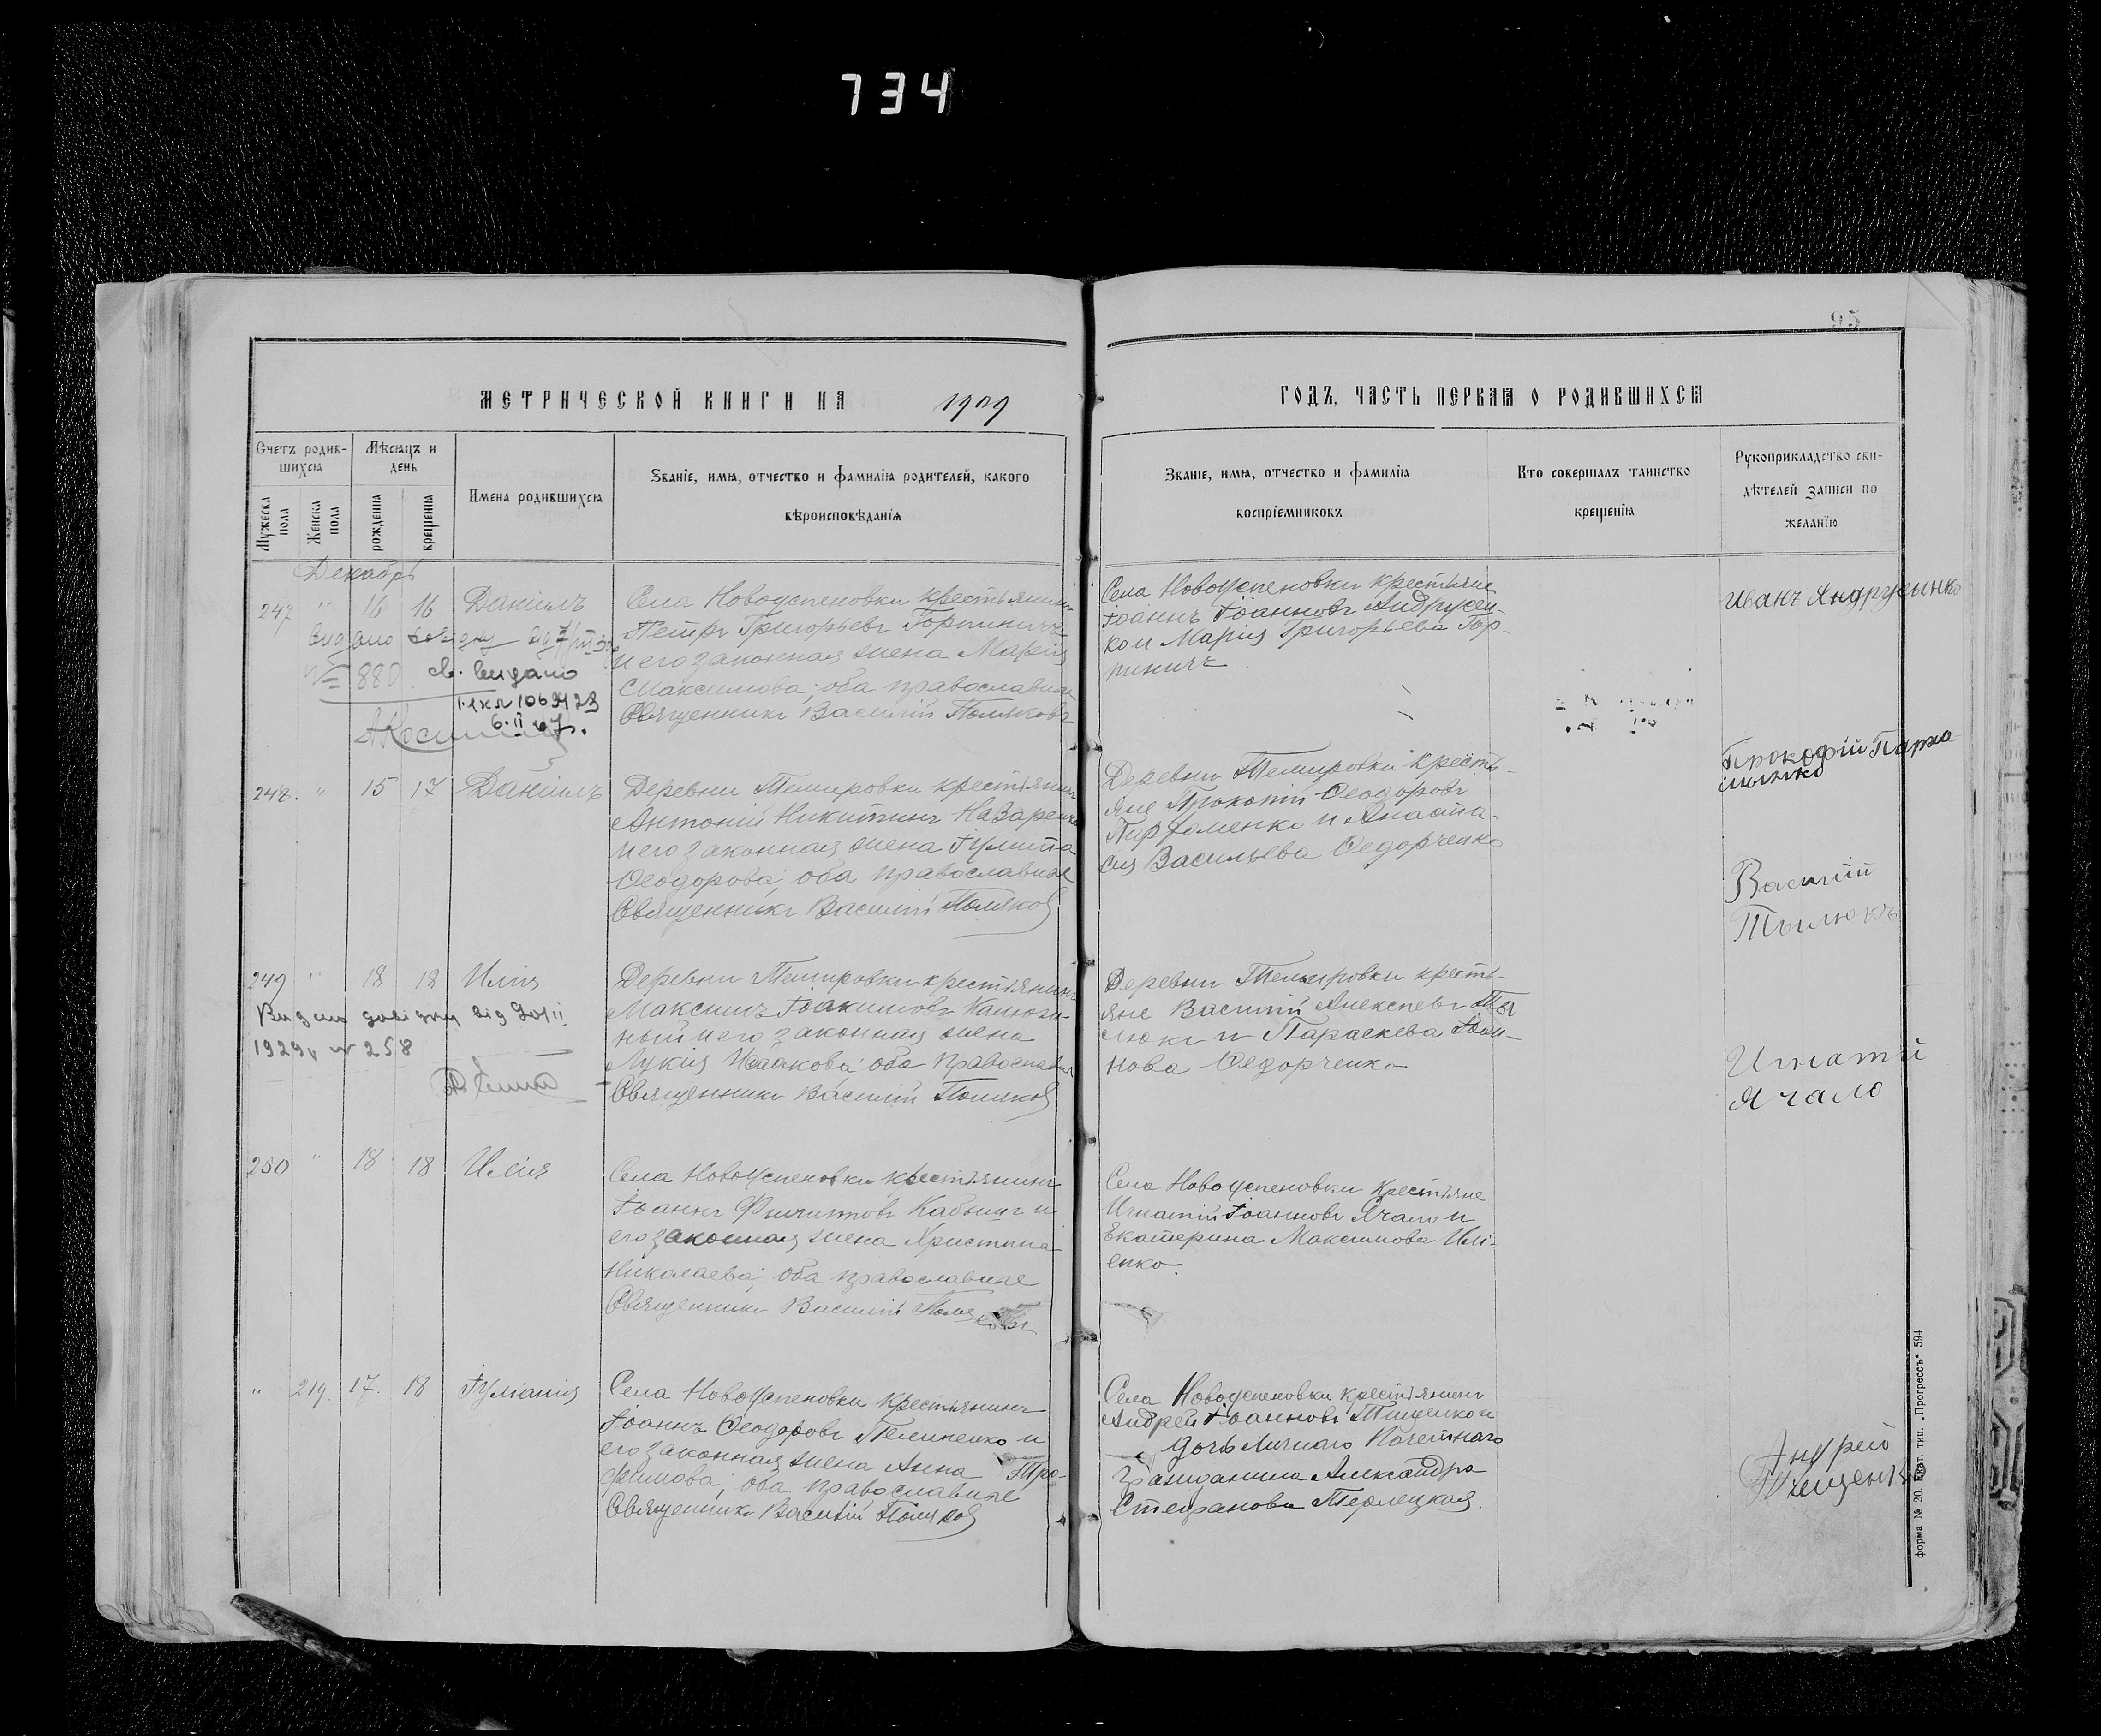 734
95
МЕТРИЧЕСКОЙ КНИГИ НА 1909
ГОДЪ, ЧАСТЬ ПЕРВАЯ О РОДИВШИХСЯ
Счетъ родив-
шихся
Мужеска
пола
Женска
пола
Мѣсяцъ и
день
рожденія
крещенія
Имена родившихся
Званіе, имя, отчество и фамилія родителей, какого
вѣроисповѣданія
Званіе, имя, отчество и фамилія
воспріемниковъ
Кто совершалъ таинство
крещенія
Рукоприкладство сви-
дѣтелей записи по
желанію
Декабрь
247 " 16 16 Даніилъ
Видано довідку
№ 880 св. видано
1069423
6.II 47.
Села Новоуспеновки крестьянинъ
Петръ Григорьевъ Горпиничъ
и его законная жена Марія
Максимова; оба православные
Священникъ Василій Поляковъ
Села Новоуспеновки крестьяне
Іоаннъ Іоанновъ Андрусен-
ко и Марія Григорьева Гор-
пиничъ
Иванъ Яндрусынко
248. " 15 17 Даніилъ
Деревни Темировки крестьянинъ
Антоній Никитинъ Назаренко
и его законная жена Іулитта
Ѳеодорова; оба православные
Священникъ Василій Поляковъ
Деревни Темировки кресть-
яне Прокопій Ѳеодоровъ
Парфоменко и Анаста-
сія Васильева Ѳедорченко
Прокофій Пархо
мынко
249 " 18 18 Илія
Видано довідку від 20/II
1929 № 258
Деревни Темировки крестьянинъ
Максимъ Іоакимовъ Калюж-
ный и его законная жена
Лукія Исаакова; оба православные
Священникъ Василій Поляковъ
Деревни Темировки кресть-
яне Василій Алексеевъ Ты
люкъ и Параскева Іоан-
нова Ѳедорченко
Василій
Тылюкъ
250 " 18 18 Илія
Села Новоуспеновки крестьянинъ
Іоаннъ Филипповъ Кабышъ и
его законная жена Христина
Николаева; оба православные
Священникъ Василій Поляковъ
Села Новоуспеновки крестьяне
Игнатій Іоанновъ Ячало и
Екатерина Максимова Илі-
енко.
Игнатій
Ячало
" 219. 17. 18 Іуліанія
Села Новоуспеновки крестьянинъ
Іоаннъ Ѳеодоровъ Пелипенко и
его законная жена Анна Тро-
фимова; оба православные
Священникъ Василій Поляковъ
Села Новоуспеновки крестьянинъ
Андрей Іоанновъ Тищенко и
дочь Личнаго Почетнаго
Гражданина Александра
Стефанова Терлецкая.
Андрей
Тищенко
форма № 20. Екат. тип. „Прогрессъ" 594